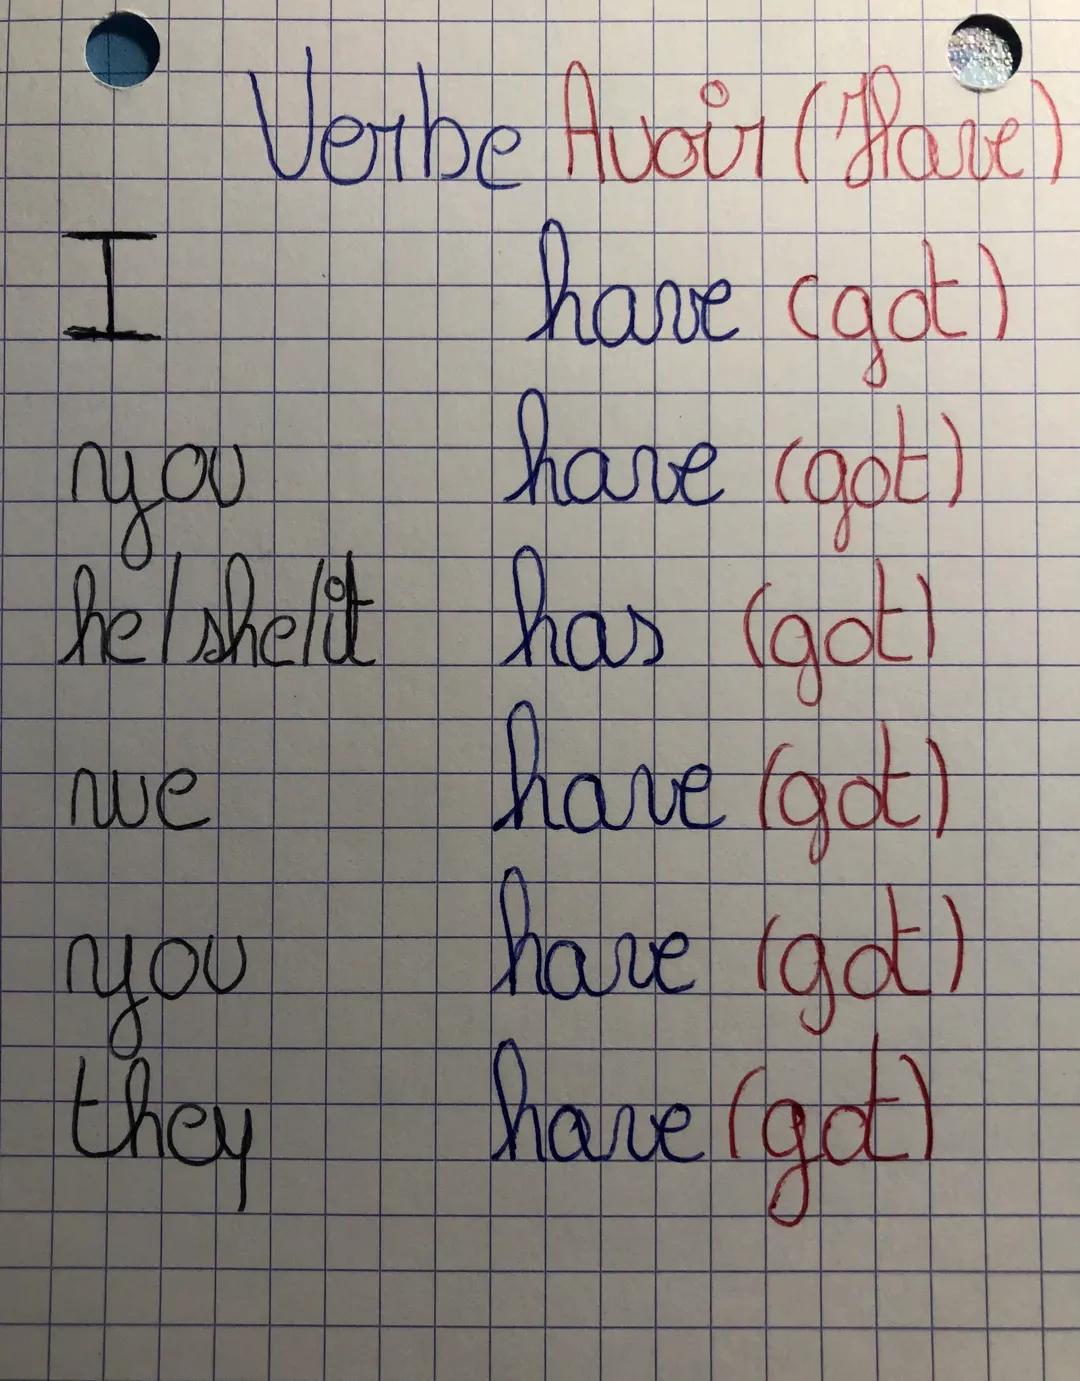 Verbe Avoir (Have)
I have (got)
you have (got)
he/she/it has (got)
we have (got)
you have (got)
they have (got)